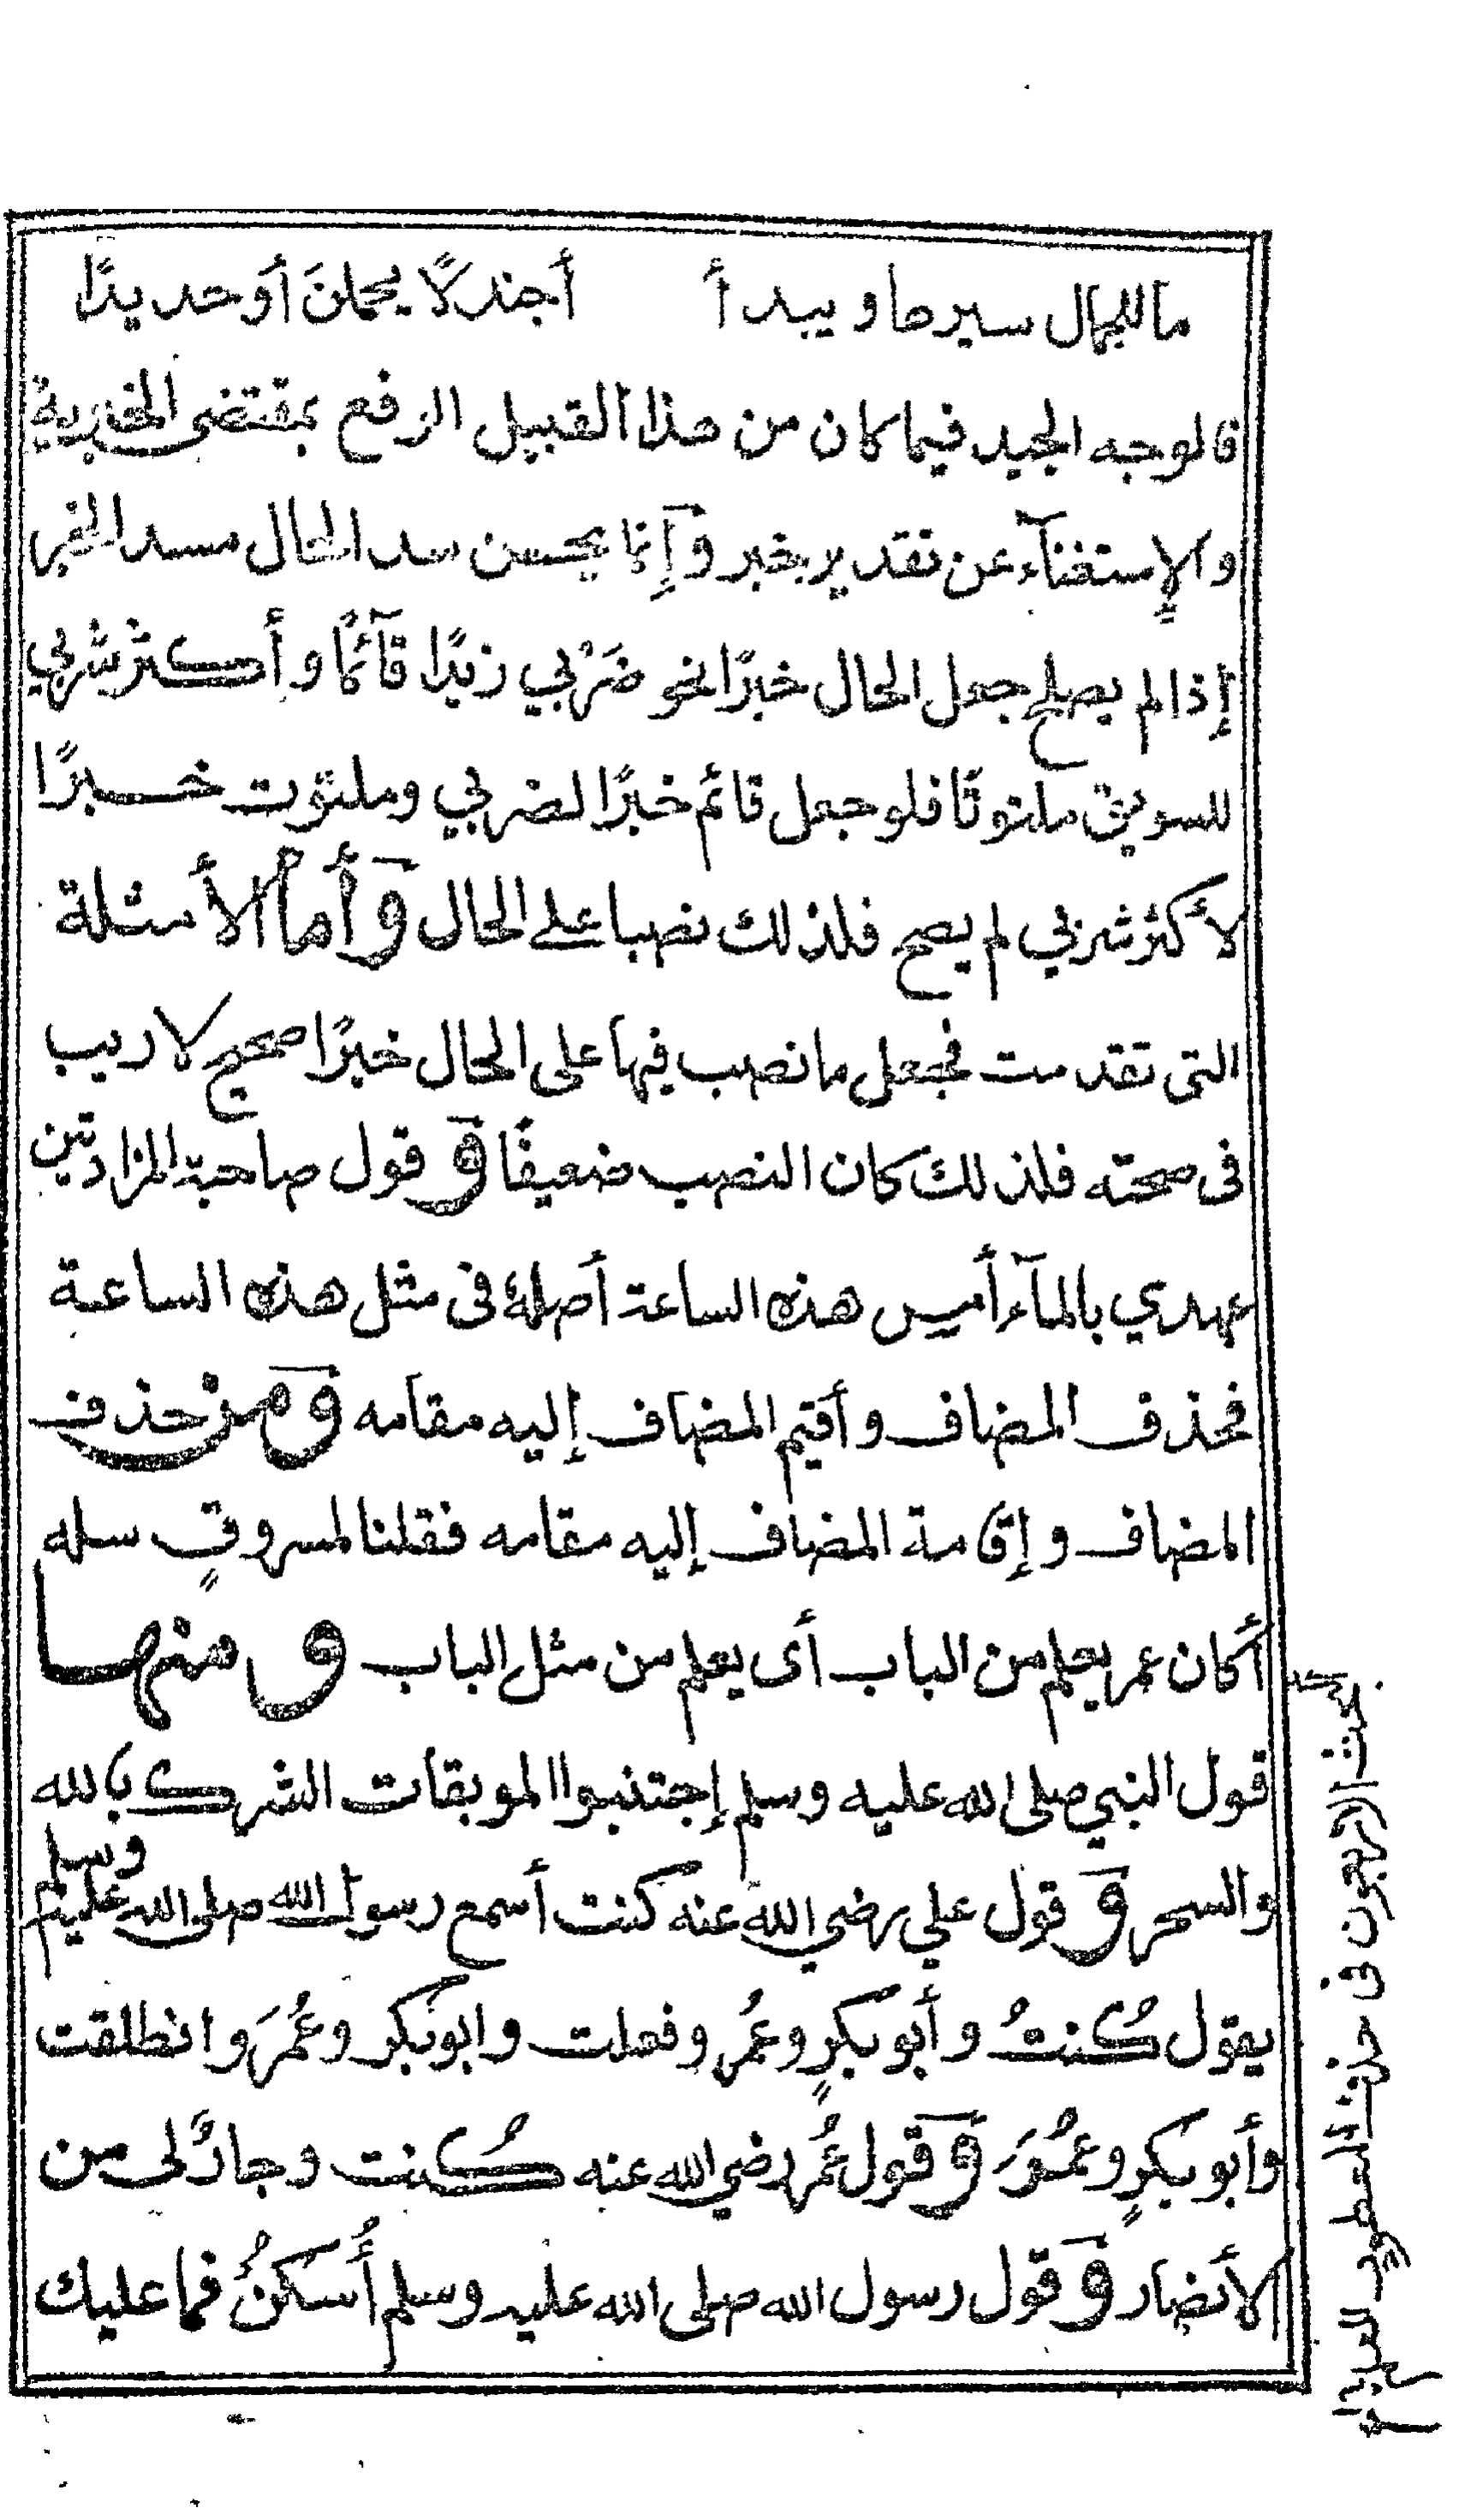 ما للجمال سيرها وييدأ أجندلًا يحملنَ أو حديدًا
فالوجه الجيد فيما كان من هذا القبيل الرفع بمقتضى الخبرية
والإستغنآء عن تقدير خبر وَإِنما يحسن سد الحال مسد الخبر
إذا لم يصلح جعل الحال خبرًا نحو ضَرْبي زيدًا قآئمًا وأكثر شربي
للسويق ملتوتًا فلو جعل قائم خبرًا لضربي وملتوت خبرًا
لأكثر شربي لم يصح فلذلك نصبا على الحال وَأما الأمثلة
التى تقدمت فجعل ما نصب فيها على الحال خبرًا صحيح لا ريب
فى صحته فلذلك كان النصب ضعيفًا وَ قول صاحبة المزادتين
عهدي بالمآء أمس هذه الساعة أصله فى مثل هذه الساعة
فحذف المضاف وأقيم المضاف إليه مقامه وَمن حذف
المضاف وإقامة المضاف إليه مقامه فقلنا لمسروقٍ سله
أكان عمر يعلم من الباب أى يعلم من مثل الباب ومنها
قول النبي صلى الله عليه وسلم إجتنبوا الموبقات الشرك بالله
والسحر وَ قول علي رضي الله عنه كنت أسمع رسول الله صلى الله عليه وسلم
يقول كُنتُ وأبو بكرٍ وعُمر وفعلت وابو بكر وعُمَر وانطلقت
وأبو بكرٍ وعُمَر وَ قول عُمر رضي الله عنه كُنت وجارٌ لى من
الأنصار وَ قول رسول الله صلى الله عليه وسلم أُسكنْ فما عليك